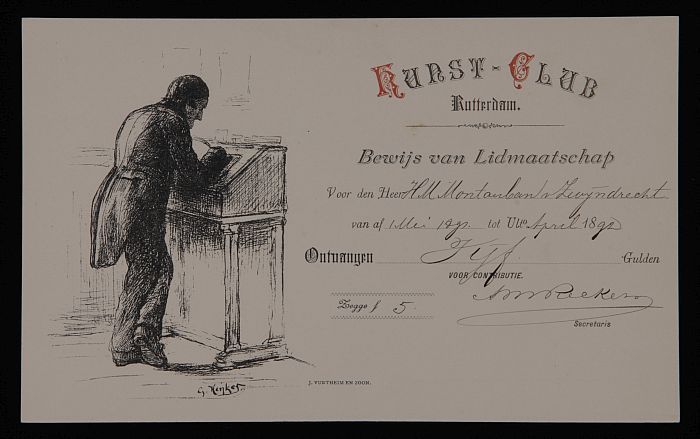 Kunst-Club
Rotterdam.
Bewijs van Lidmaatschap
Voor den Heer H.M. Montauban v Zwijndrecht
van af 1 Mei 189 tot Ulto April 1890
Ontvangen Gulden
VOOR CONTRIBUTIE.
Zegge f 5
Secretaris
J. VURTHEIM EN ZOON.